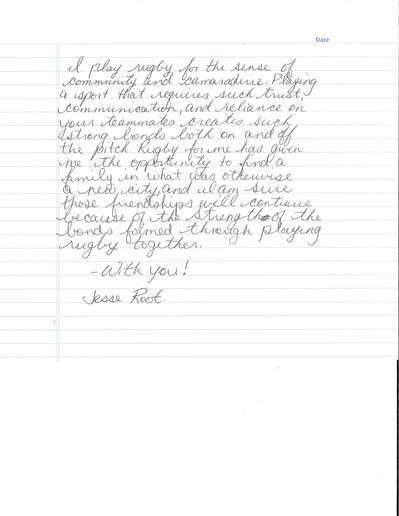 Date
I play rugby for the sense of
community and camaraderie. Playing
a sport that requires such trust,
communication, and reliance on
your teammates creates such
strong bonds both on and off
the pitch. Rugby for me has given
me the opportunity to find a
family in what was otherwise
a new city, and I am sure
those friendships will continue
because of the strength of the
bonds formed through playing
rugby together.
- With you!
Jesse Root.